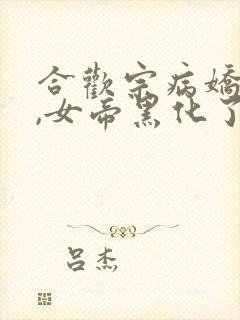 合歡宗病嬌
,女帝黑化了
呂杰